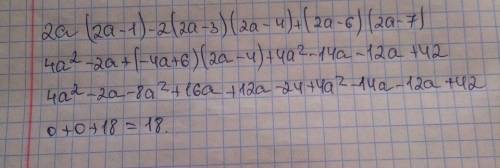 2a (2a-1)-2(2a-3)(2a-4)+(2a-6)(2a-7)
4a²-2a+(-4a+6)(2a-4)+4a²-14a-12a+42
4a²-2a-8a²+16a+12a-24+4a²-14a-12a+42
0+0+18=18.